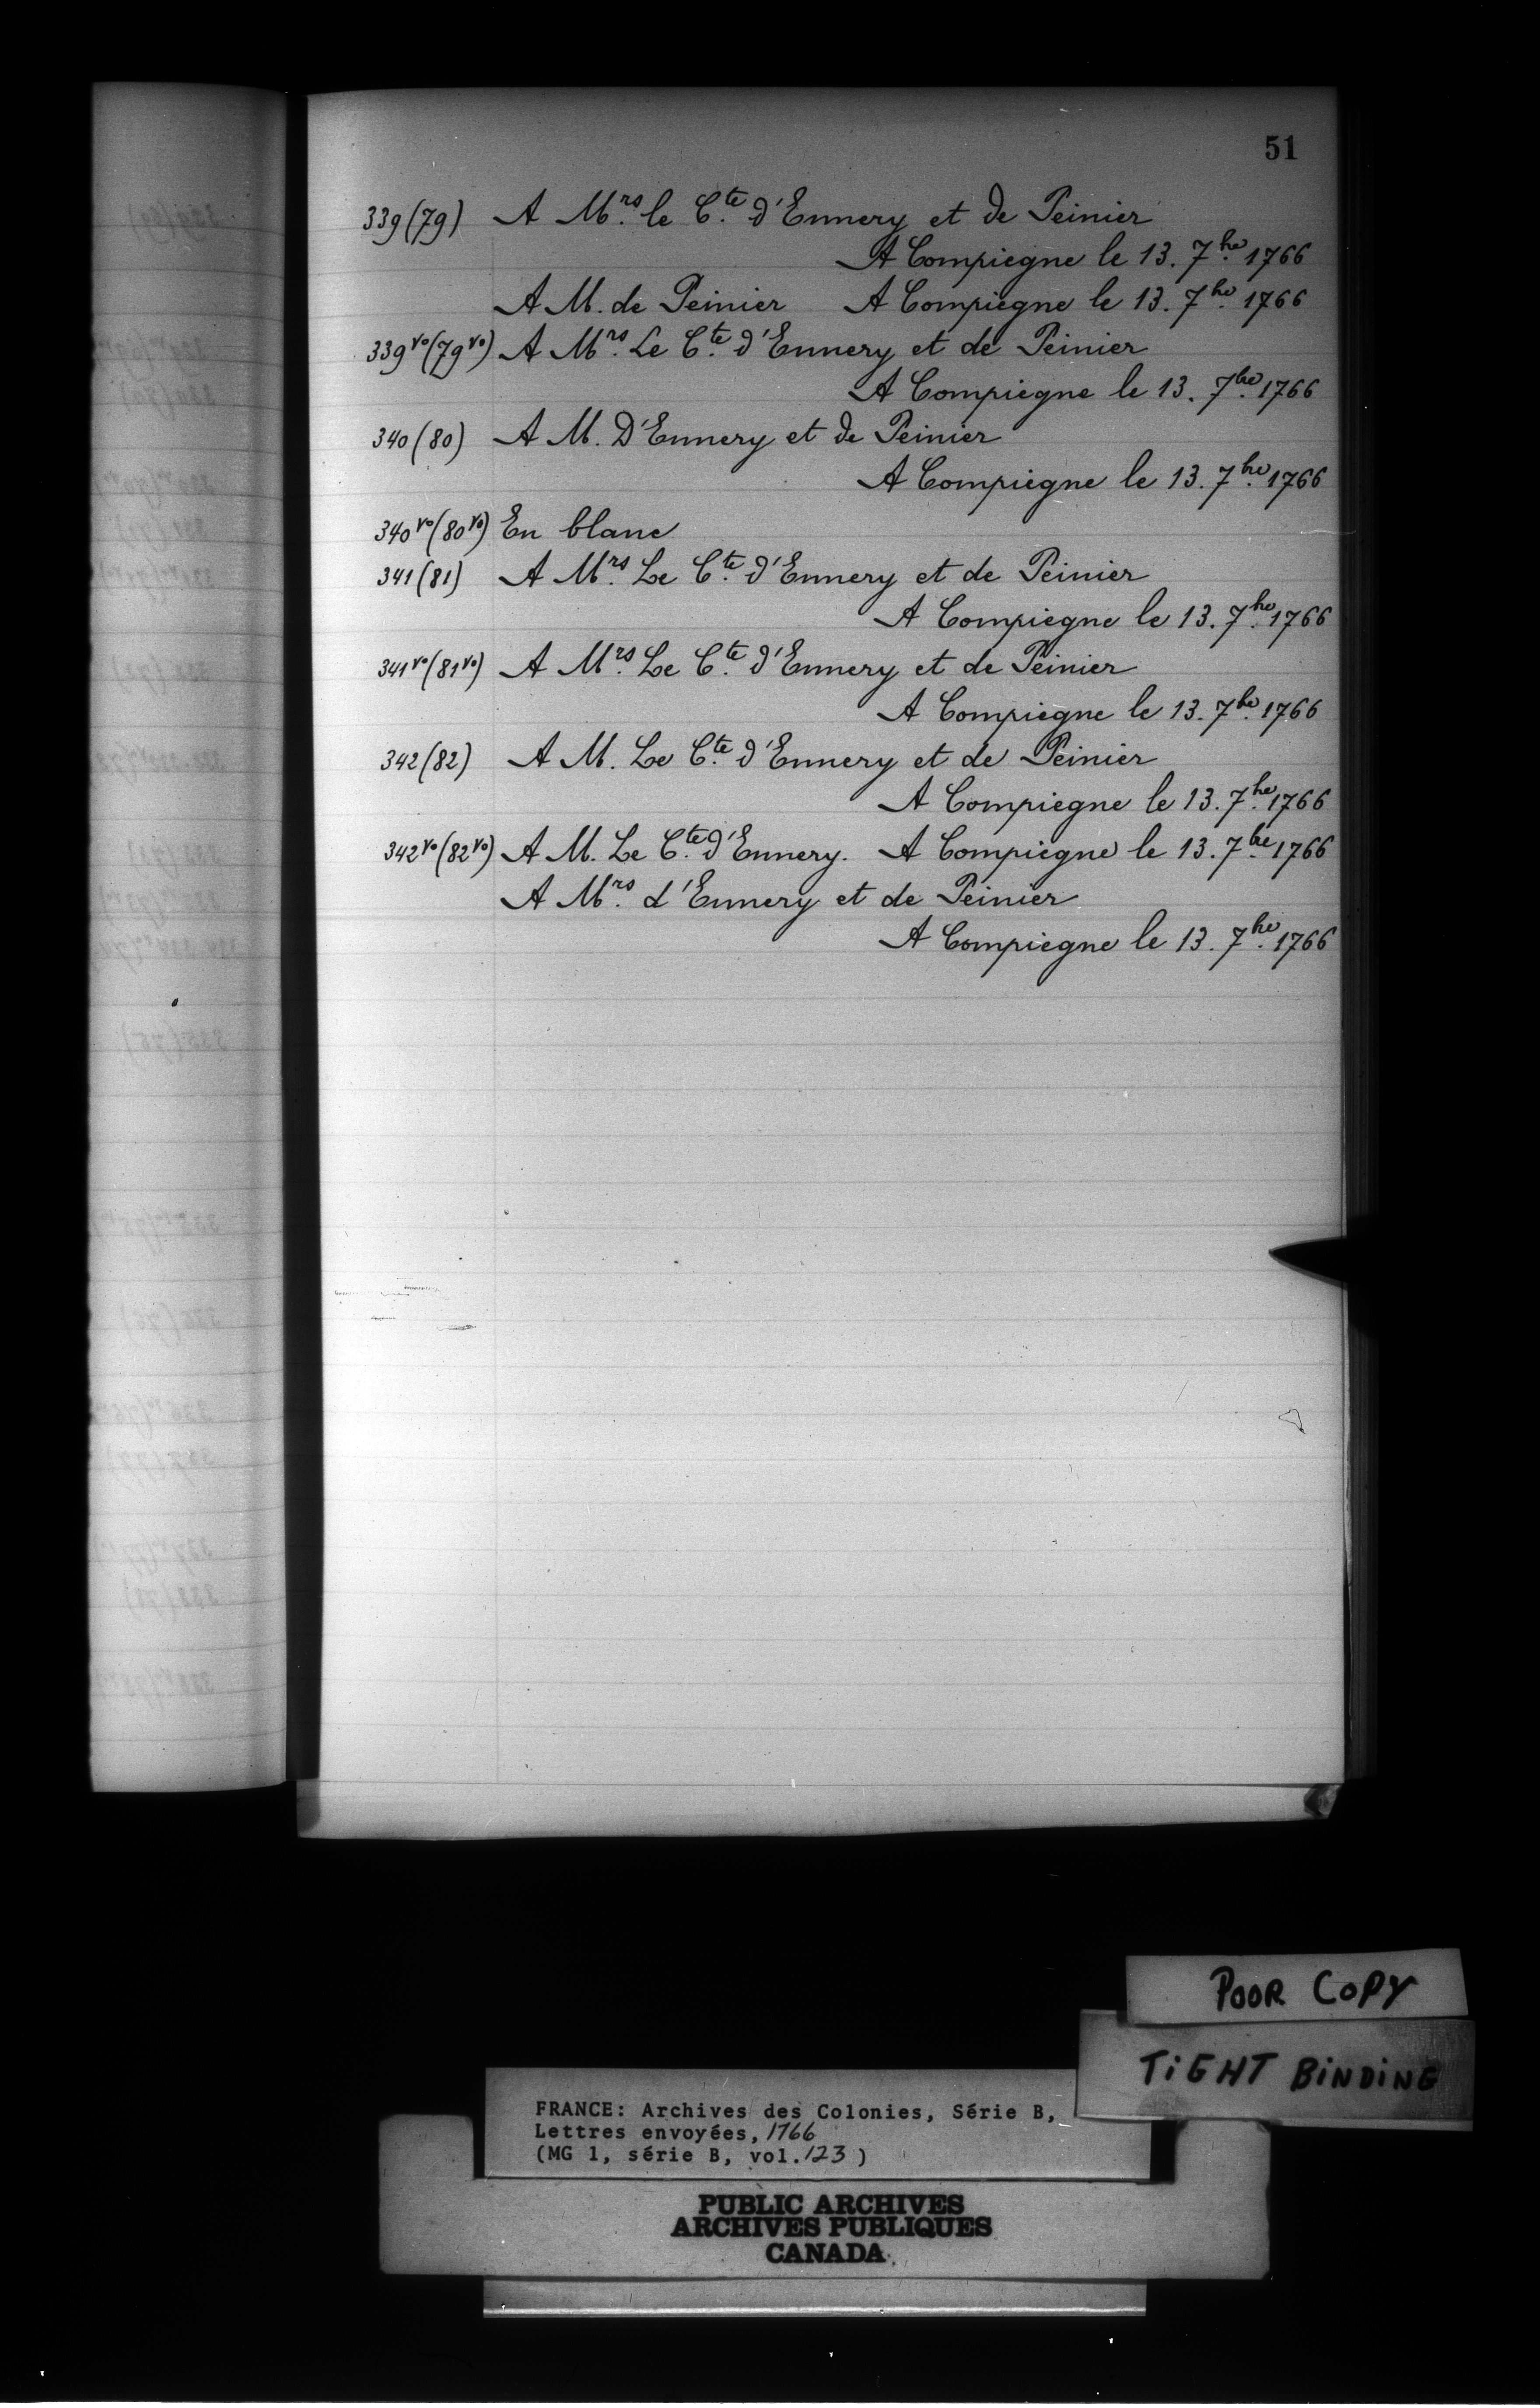 51
339 (79) A Mrs. le Cte. d'Ennery et de Peinier
A Compiègne le 13. 7bre. 1766
A M. de Peinier A Compiègne le 13. 7bre. 1766
339 vo (79 vo) A Mrs. Le Cte. d'Ennery et de Peinier
A Compiègne le 13. 7bre. 1766
340 (80) A M. D'Ennery et de Peinier
A Compiègne le 13. 7bre. 1766
340 vo (80 vo) En blanc
341 (81) A Mrs. Le Cte. d'Ennery et de Peinier
A Compiègne le 13. 7bre. 1766
341 vo (81 vo) A Mrs. Le Cte. d'Ennery et de Peinier
A Compiègne le 13. 7bre. 1766
342 (82) A M. Le Cte. d'Ennery et de Peinier
A Compiègne le 13. 7bre. 1766
342 vo (82 vo) A M. Le Cte. d'Ennery. A Compiègne le 13. 7bre. 1766
A Mrs. d'Ennery et de Peinier
A Compiègne le 13. 7bre. 1766
POOR COPY
TIGHT BINDING
FRANCE: Archives des Colonies, Série B,
Lettres envoyées, 1766
(MG 1, série B, vol. 123)
PUBLIC ARCHIVES
ARCHIVES PUBLIQUES
CANADA